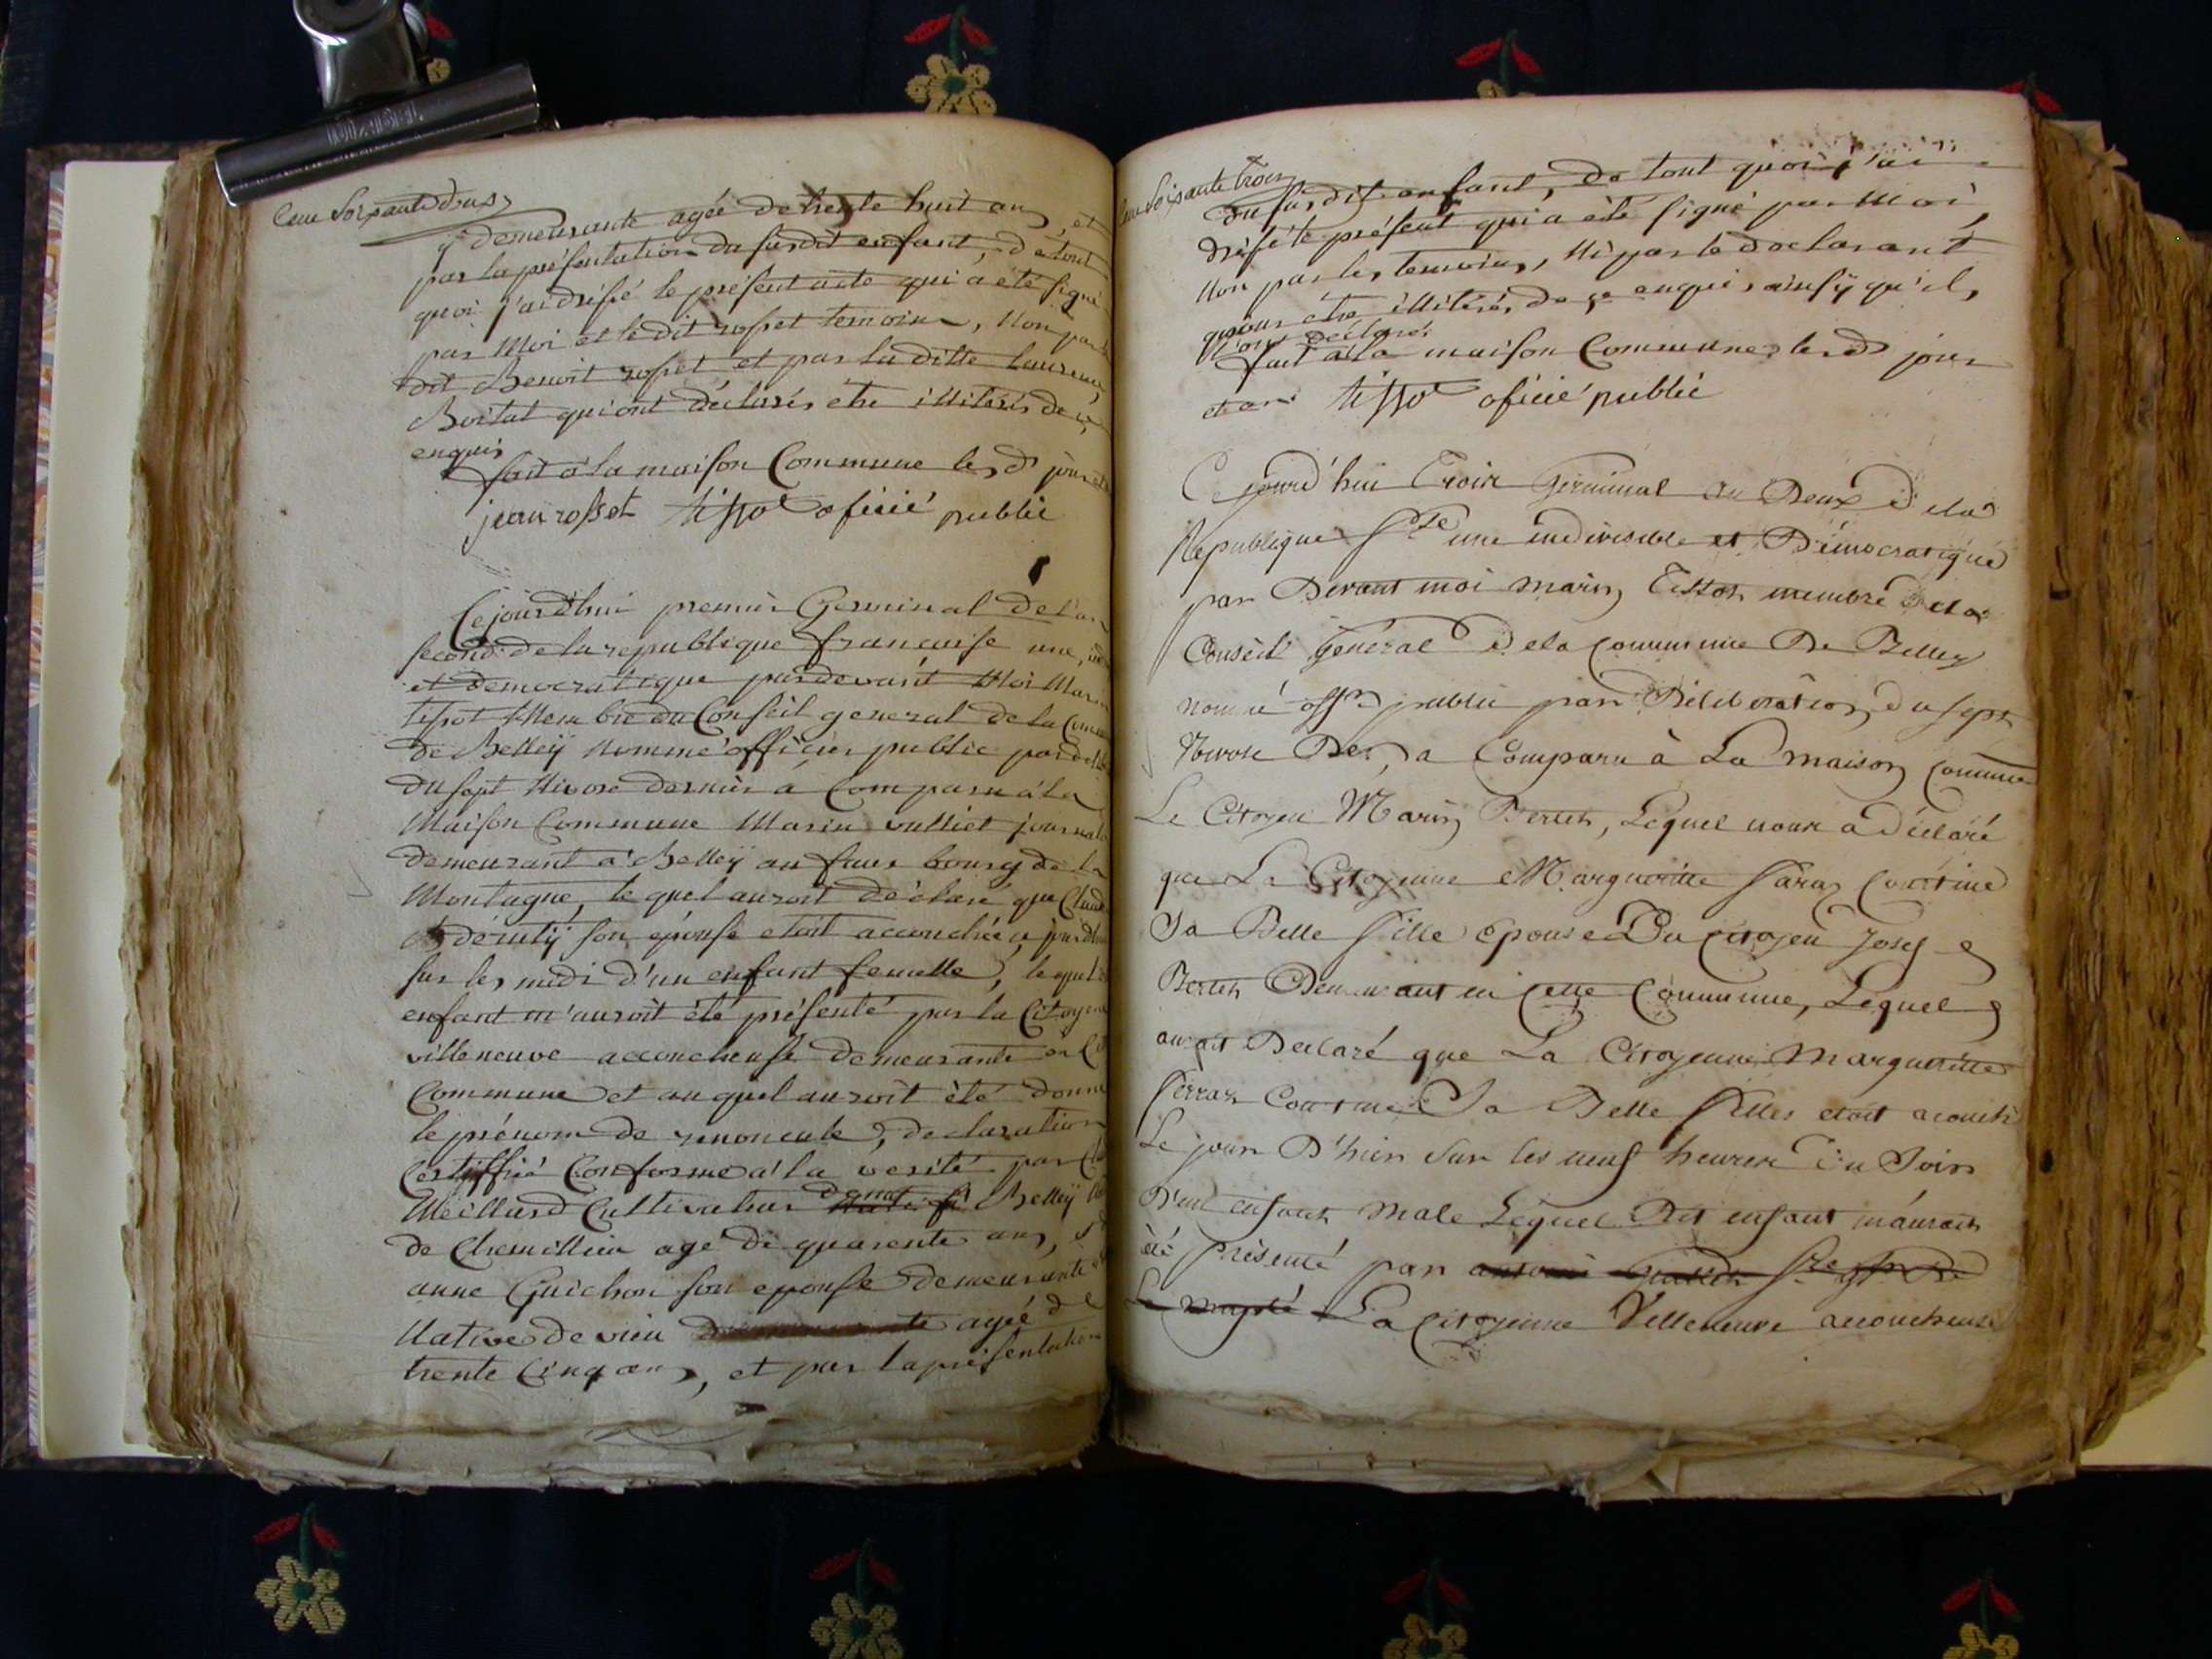 Cent soixante deux
y demeurante agée de trente huit ans, et
par la présentation du susdit enfant, de tout
quoi j'ai dréssé le présent acte qui a été signé
par moi et le dit rosset temoins, non par
dit Benoit rosset et par la ditte
qui ont déclarés étre illiterés de ce
enquis
fait à la maison Commune les d jour et
jean rosset tisso oficié public
Cejourd'hui premier Germinal de l'an
second de la republique francaise une,
et democratique pardevant Moi Marin
tissot Membre du Conseil general de la
de Belleÿ nommé officier public par
du sept Nivose dernier a Comparu à la
Maison Commune Marin vulliet
demeurant à Belleÿ au faux bourg de la
Montagne, le quel auroit déclaré que
son épouse etoit accouchée
sur les midi d'un enfant femelle, lequel
enfant m'auroit été présenté par la Citoyene
villeneuve accoucheuse demeurante en
Commune et au quel auroit été donné
le prénom de renoncule, declaration
Certiffié Conforme à la verité par
Meillard Cultivateur Belleÿ
de Chemillieu age de quarente ans,
anne Guichon son epouse demeurante
Native de vieu agée de
trente Cinq ans, et par la présentation
Cent Soixante trois
du susdit enfant, de tout quoi j'ai
dréssé le présent qui a été signé par Moi,
Non par les temoins, Ni par le declarant
pour étre illiterés de ce enquis ainsÿ qu'ils
l'ont déclaré
fait à la maison Commune les d jour
et an tisso oficié public
Ce jourd'hui Trois Germinal an Deux de la
Republique fse une indivisible et Démocratique
par Devant moi marin Tissot membre de la
Conseil général de la Commune De Belley
nommé offr public par Déliberation du sept
Nivose Der, a Comparu à La maison commune
Le Citoyen Marin Bertet, Lequel nous a déclaré
que La Citoyenne Marguerite
Sa Belle fille epouse Du citoyen Josef
Bertet Demeurant en cette Commune, Lequel
aurait Declaré que La Citoyenne Margueritte
Sa Belle filles etoit acouché
Le jour D'hier sur les neuf heures du Soir
D'un enfant male Lequel Dit enfant m'auroit
été présenté par
La citoyenne Villeneuve accoucheuse